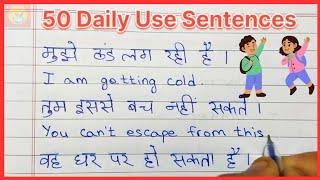 50 Daily Use Sentences
मुझे ठंड लग रही है ।
I am getting cold.
तुम इससे बच नहीं सकते ।
You can't escape from this
वह घर पर हो सकता है ।